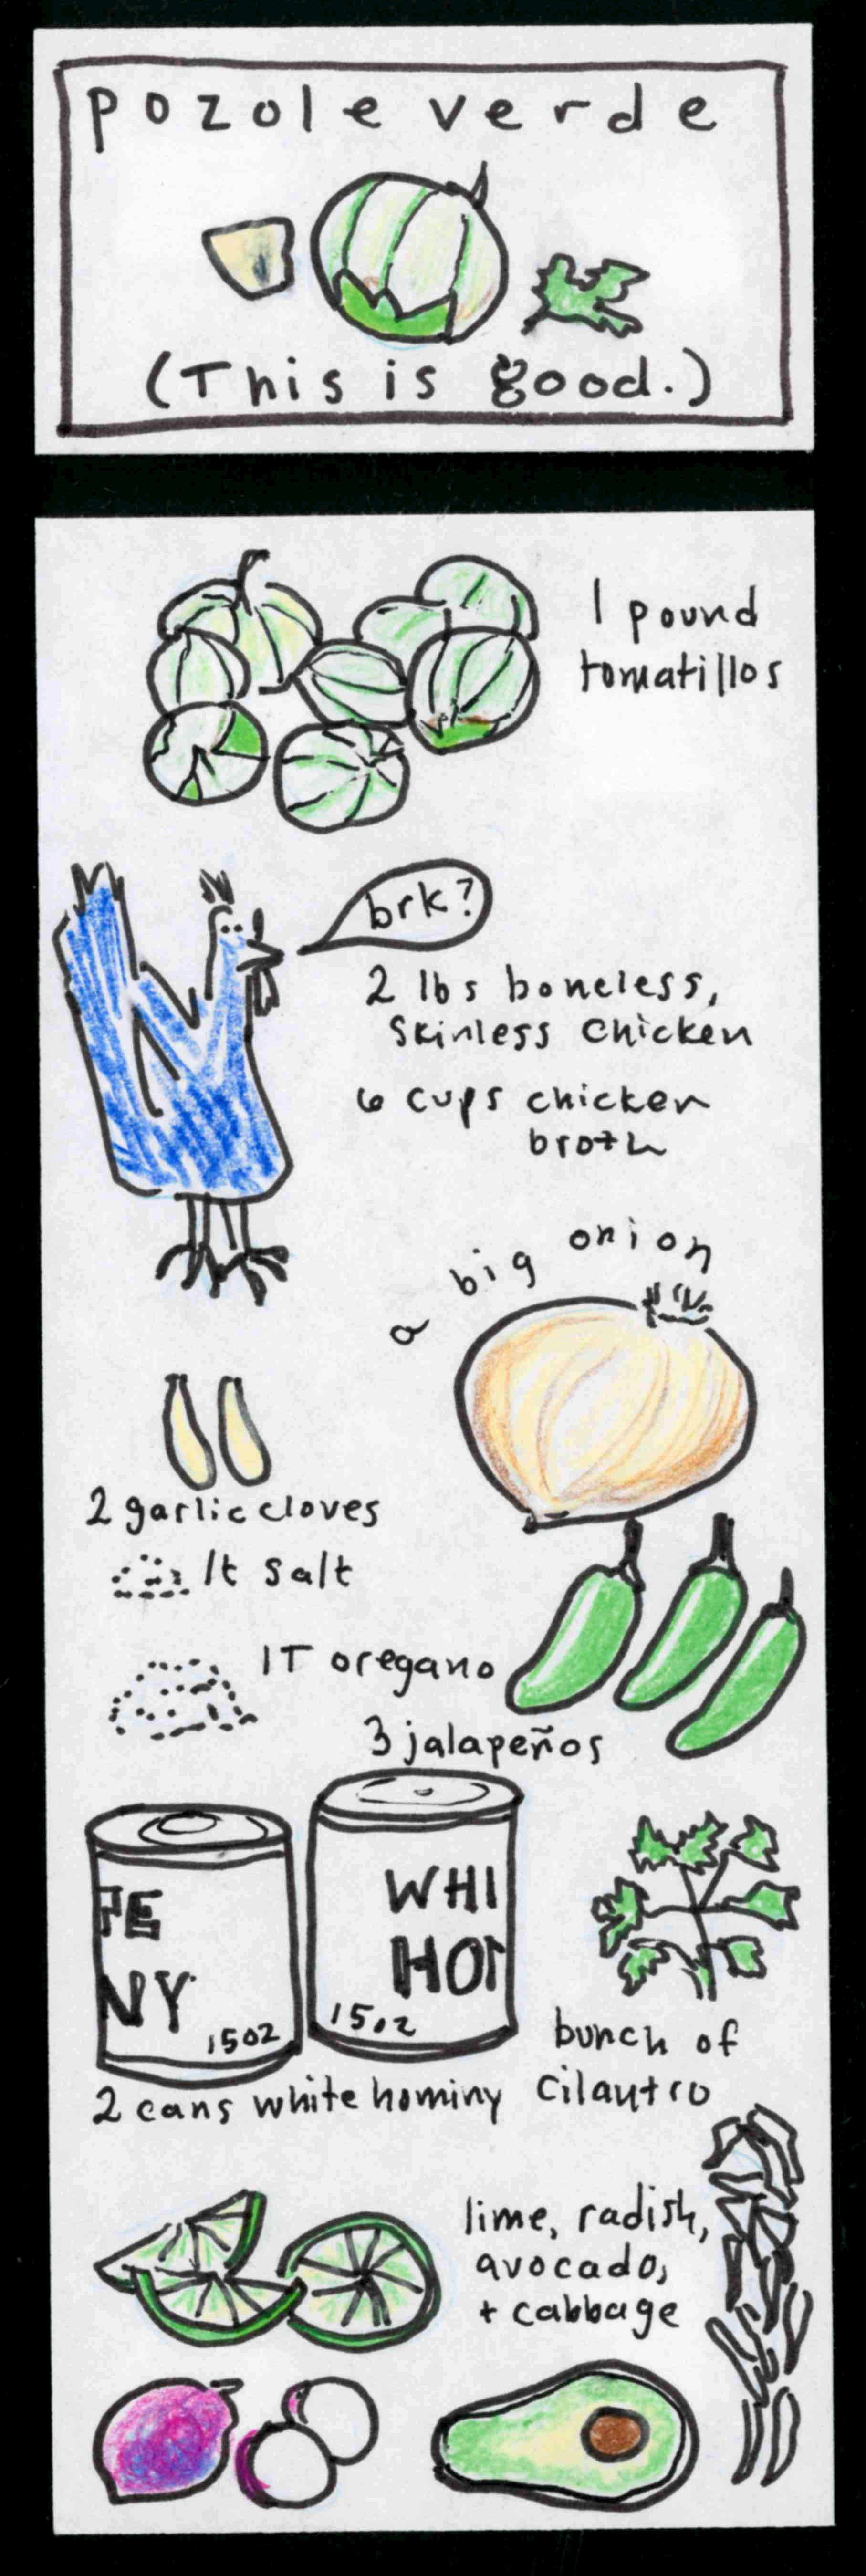 pozole verde
(This is good.)
1 pound
tomatillos
brk?
2 lbs boneless,
skinless chicken
6 cups chicken
broth
a big onion
2 garlic cloves
1t salt
1T oregano
3 jalapeños
PE
NY
15oz
WHI
HOM
15oz
2 cans white hominy
bunch of
cilantro
lime, radish,
avocado,
+ cabbage